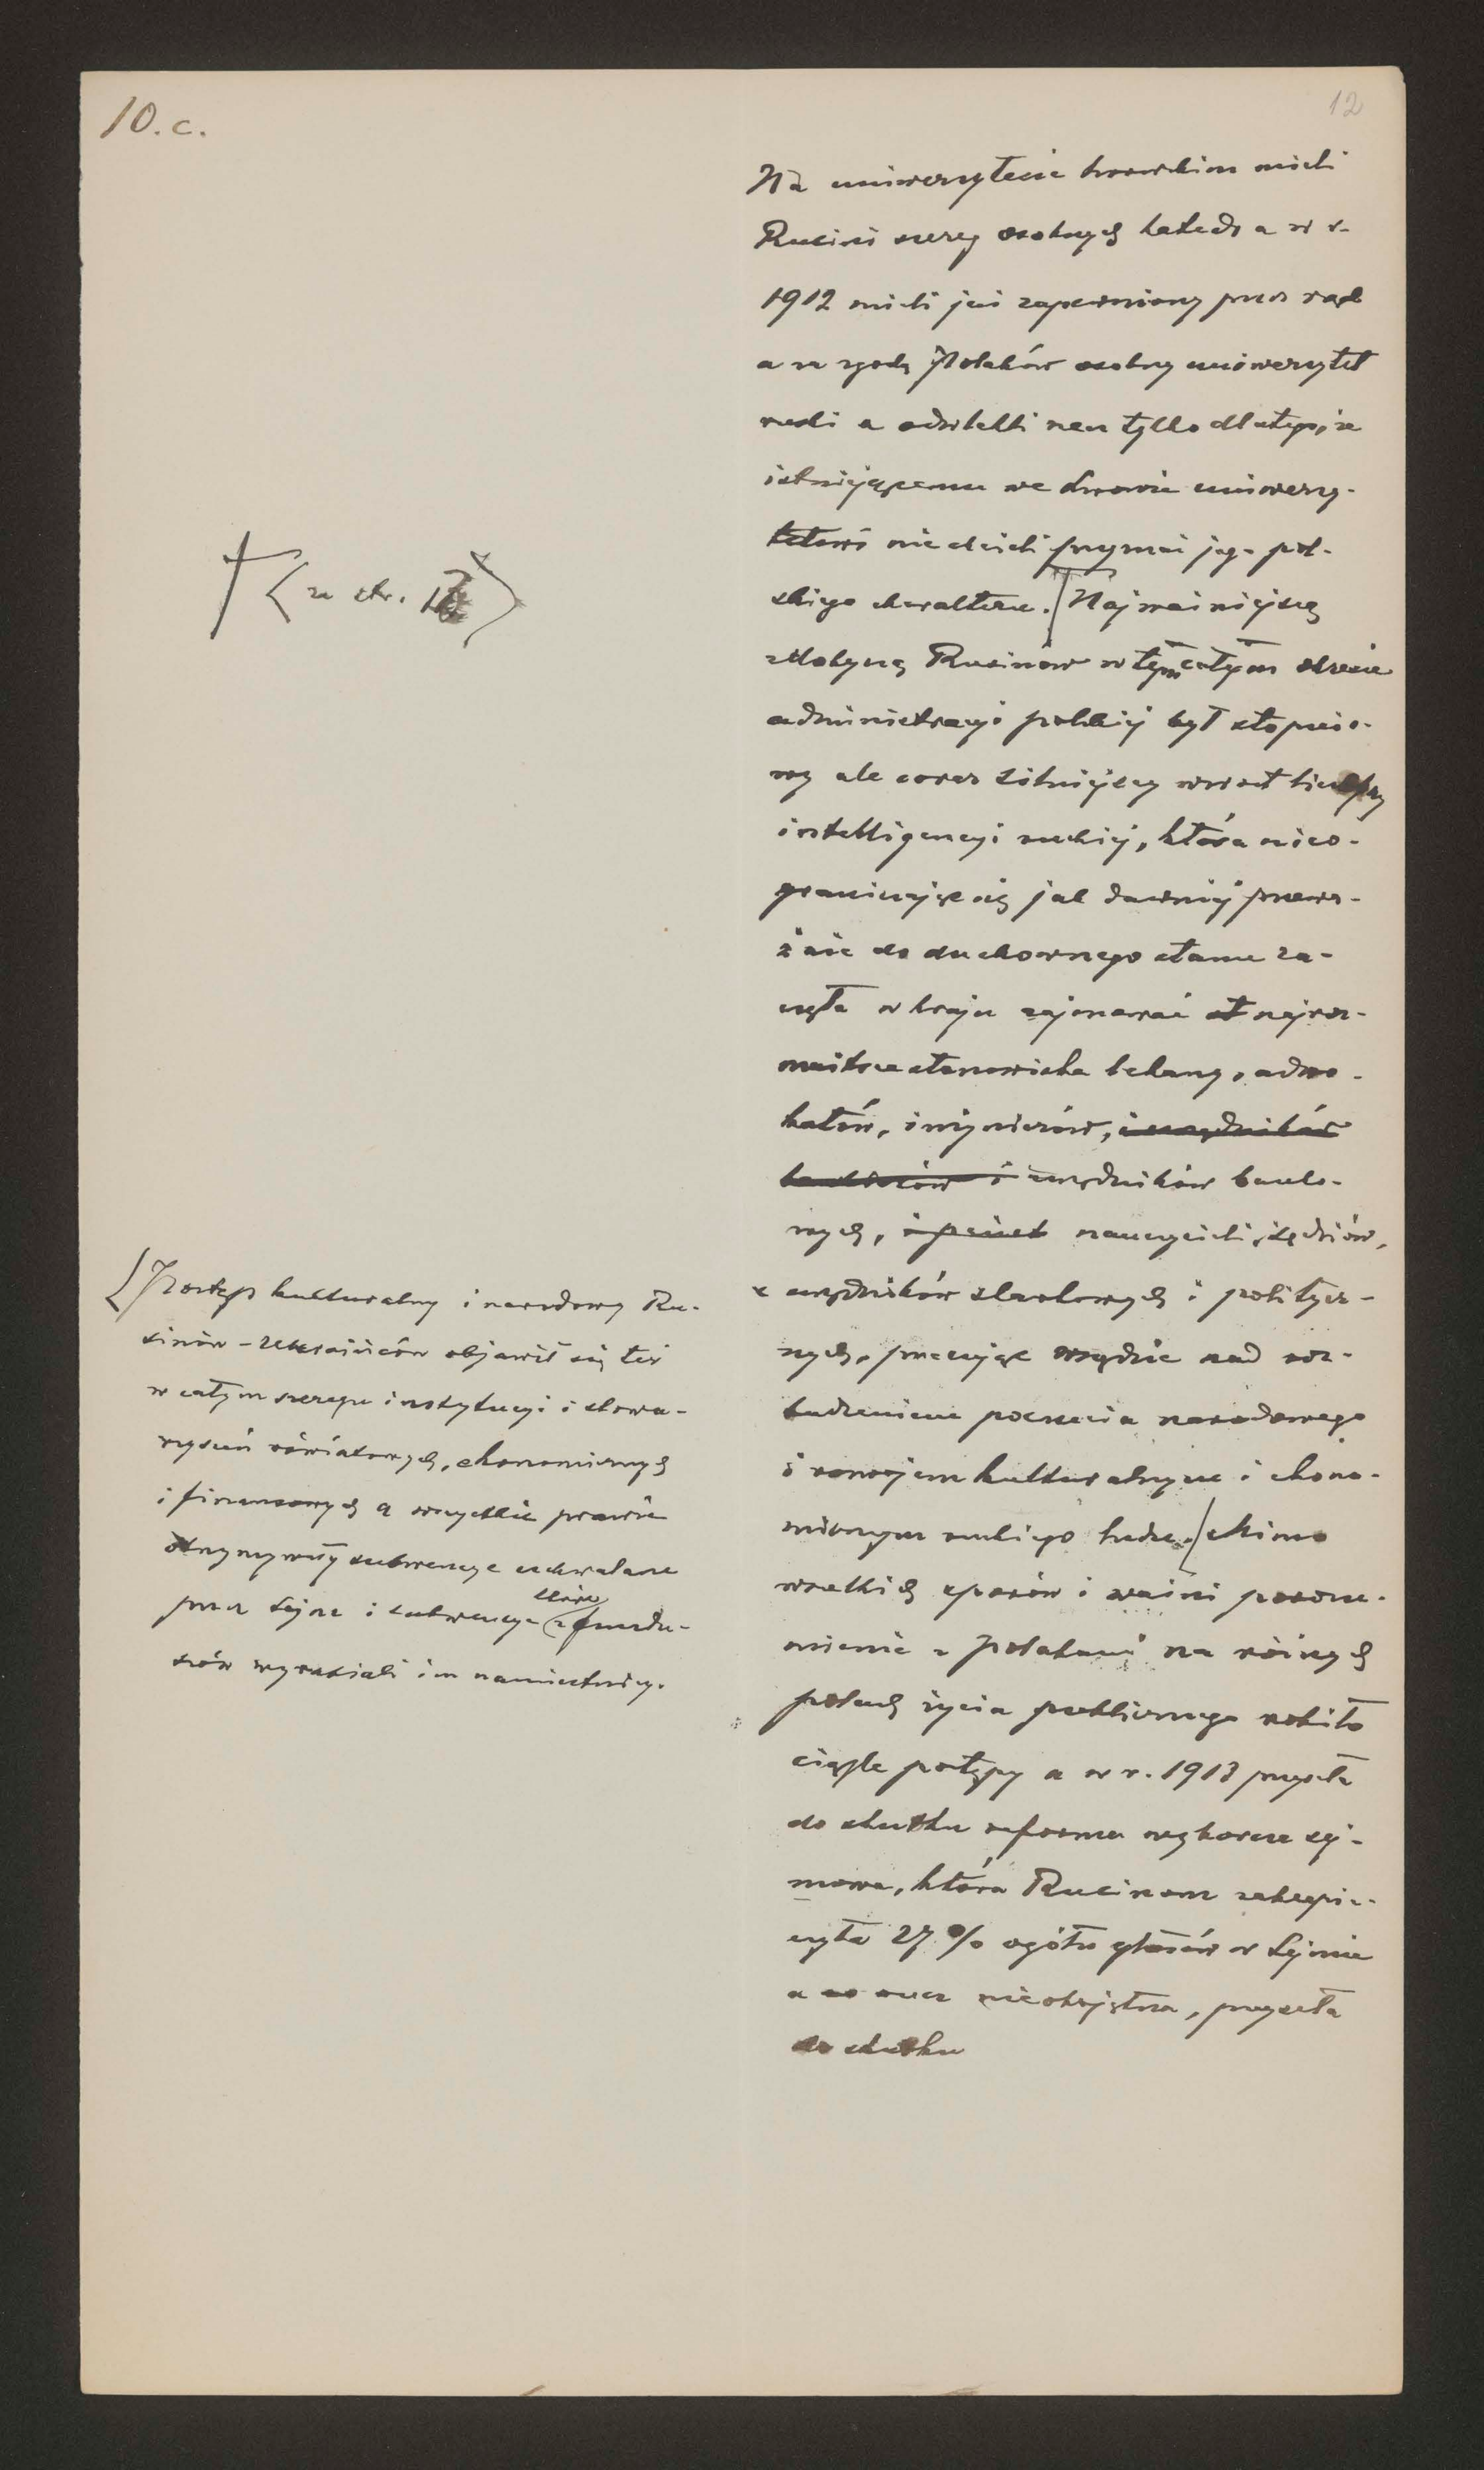 10.c.
12
Na uniwersytecie lwowskim mieli
Rusini szereg osobnych katedr a w r.
1912 mieli już zapewniony przez rząd
a za zgodą Polaków osobny uniwersytet
ruski a odwlekli rzecz tylko dlatego, że
istniejącemu we Lwowie uniwersy-
tetowi nie chcieli przyznać jego pol-
skiego charakteru. Najważniejszą
zdobyczą Rusinów w tym całym okresie
administracyi polskiej był stopnio-
wy ale coraz silniejszy wzrost liczebny
intelligencyi ruskiej, która nieo-
graniczając się jak dawniej przewa-
żnie do duchownego stanu za-
częła w kraju zajmować najroz-
maitsze stanowiska lekarzy, adwo-
katów, inżynierów, i urzędników
i urzędników banko-
wych, nauczycieli, sędziów,
urzędników skarbowych i politycz-
nych, pracując wszędzie nad roz-
budzeniem poczucia narodowego
i rozwojem kulturalnym i ekono-
micznym ruskiego ludu. Mimo
wszelkich sporów i waśni porozu-
mienie z Polakami na różnych
polach życia publicznego robiło
ciągle postępy a w r. 1913 przyszła
do skutku reforma wyborcza sej-
mowa, która Rusinom zabezpie-
czyła 27% ogółu głosów w Sejmie
a co rzecz nieobojętna, przyszła
do skutku
(ze str.
Postęp kulturalny i narodowy Ru-
sinów-Ukraińców objawił się też
w całym szeregu instytucyi i stowa-
rzyszeń oświatowych, ekonomicznych
i finansowych a wszystkie prawie
otrzymywały subwencye uchwalane
przez Sejm i subwencye które z fundu-
szów wyrabiali im namiestnicy.